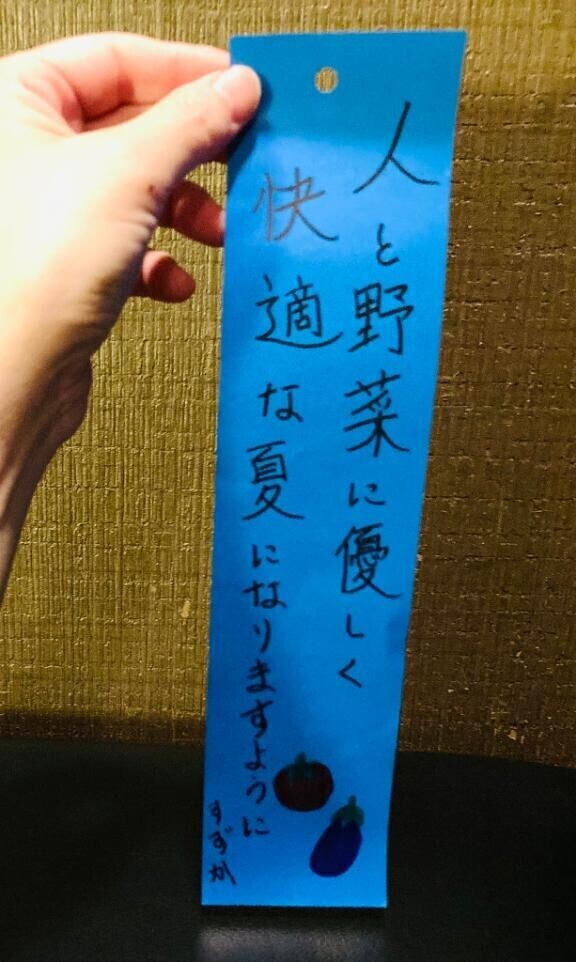 人と野菜に優しく
快適な夏になりますように
すずか